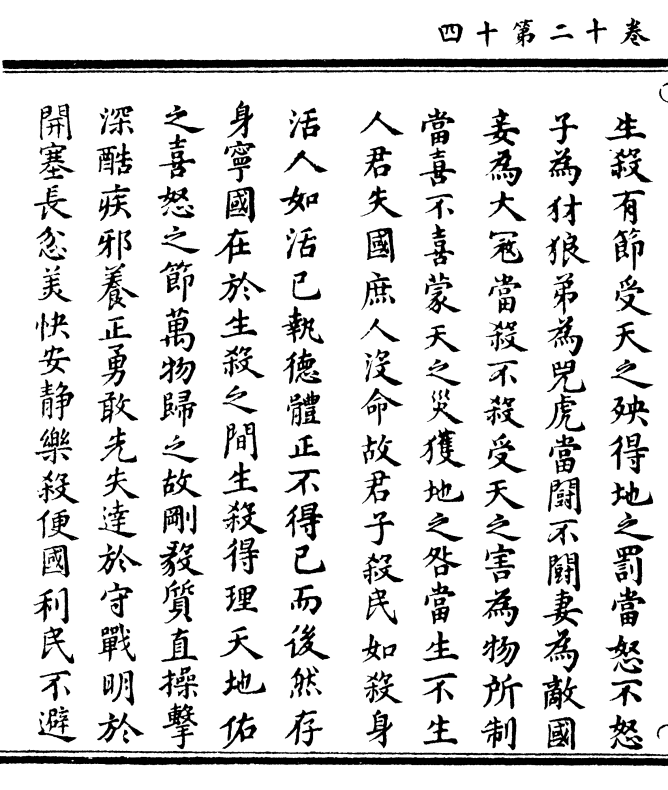 卷十二第十四
生殺有節受天之殃得地之罰當怒不怒
子為犲狼弟為兕虎當闘不闘妻為敵國
妾為大冦當殺不殺受天之害為物所制
當喜不喜蒙天之災獲地之咎當生不生
人君失國庶人没命故君子殺民如殺身
活人如活已執德體正不得已而後然存
身寧國在於生殺之間生殺得理天地佑
之喜怒之節萬物歸之故剛毅質直操擊
深酷疾邪養正勇敢先失達於守戰明於
開塞長忿美快安静樂殺便國利民不避